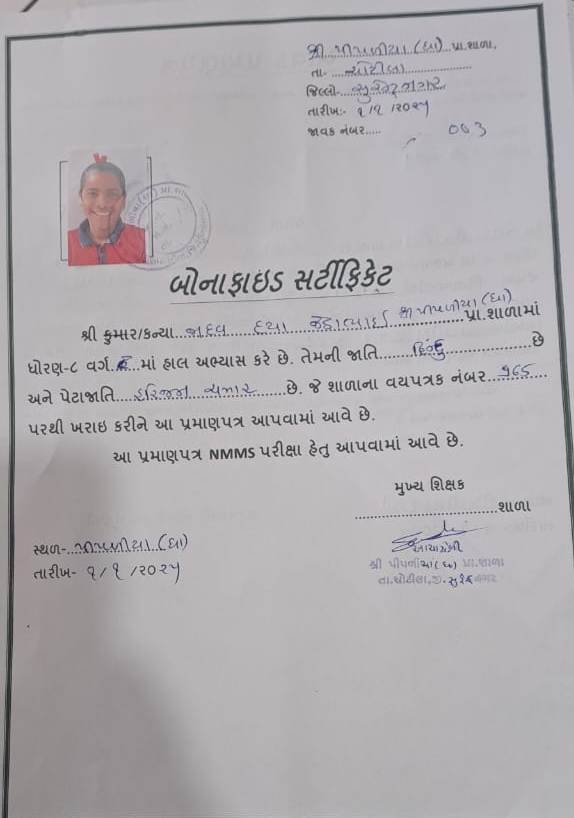 શ્રી પીપળીયા (ધા) પ્રા.શાળા.
તા. ચોટીલા
જિલ્લો. સુરેન્દ્રનગર
તારીખ:- ૧/૧/૨૦૨૫
જાવક નંબર..... 003
બોનાફાઇડ સર્ટીફિકેટ
શ્રી કુમાર/કન્યા... જાદવ દયા ... શ્રી પીપળીયા (ધા) પ્રા.શાળામાં
ધોરણ-૮ વર્ગ... માં હાલ અભ્યાસ કરે છે. તેમની જાતિ... હિન્દુ ...છે
અને પેટાજાતિ... હરિજન ચમાર ...છે. જે શાળાના વયપત્રક નંબર... ૧૬૬૫...
પરથી ખરાઇ કરીને આ પ્રમાણપત્ર આપવામાં આવે છે.
આ પ્રમાણપત્ર NMMS પરીક્ષા હેતુ આપવામાં આવે છે.
મુખ્ય શિક્ષક
શાળા
સ્થળ-.. પીપળીયા (ધા)
આચાર્યશ્રી
તારીખ- ૧/૧/૨૦૨૫
શ્રી પીપળીયા(ધા) પ્રા.શાળા
તા.ચોટીલા,જી.સુરેન્દ્રનગર